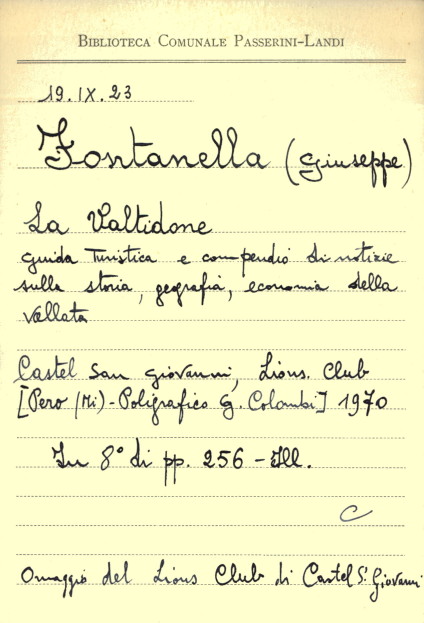 BIBLIOTECA COMUNALE PASSERINI-LANDI
19.IX.23
Fontanella (Giuseppe)
La Valtidone
guida Turistica e compendio di notizie
sulla storia, geografia, economia della
vallata
Castel San Giovanni, Lions Club
[Pero (Mi) - Poligrafico G. Colombi] 1970
In 8° di pp. 256 - Ill.
C
Omaggio del Lions Club di Castel S. Giovanni